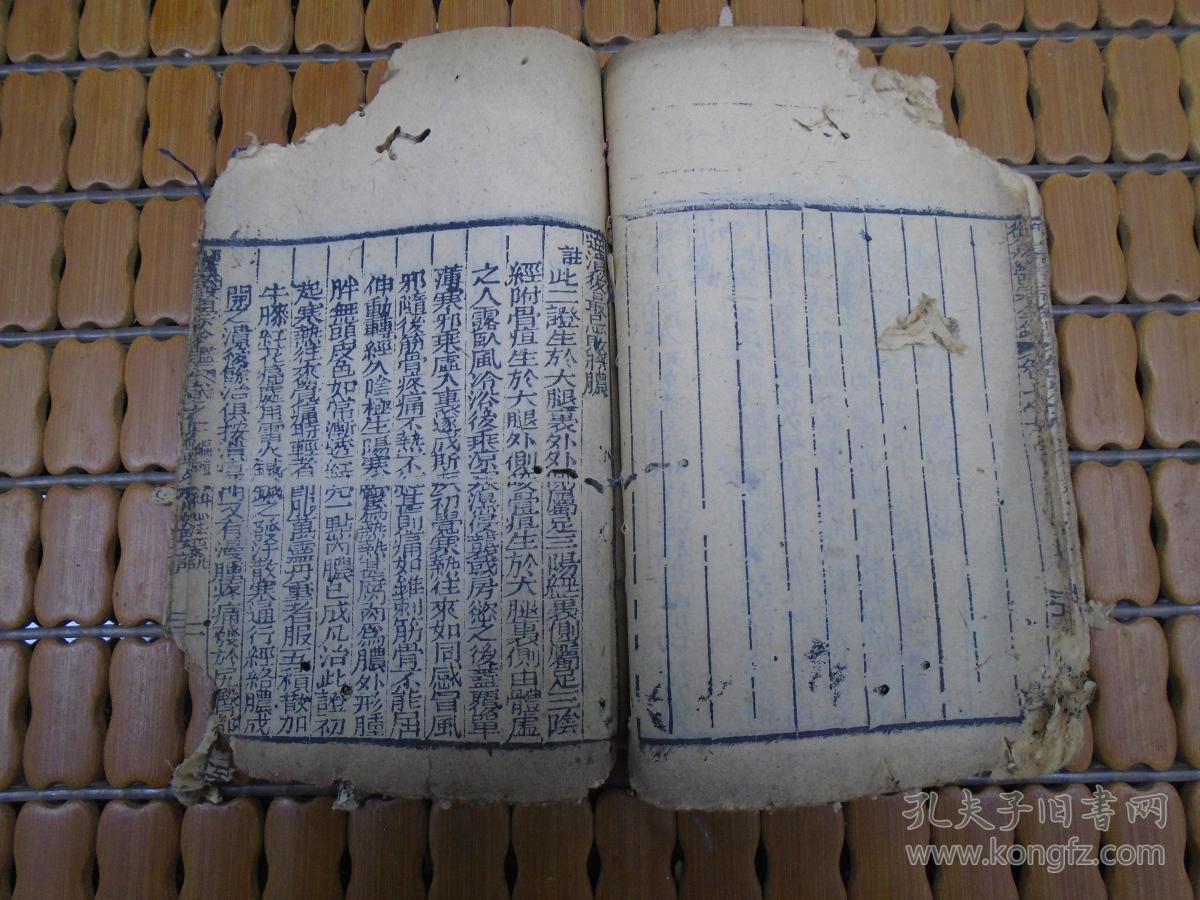 註此二證生於大腿裏外外側屬足三陽經裏側屬足三陰
經附骨疽生於大腿外側咬骨疽生於大腿裏側由體虛
之人露臥風冷浴後乘涼寒濕侵襲或房慾之後蓋覆單
薄寒邪乘虛入裏遂成斯疾初覺寒熱往來如同感冒風
邪隨後筋骨疼痛不熱不紅甚則痛如錐刺筋骨不能屈
伸動轉經久陰極生陽寒鬱為熱熱甚腐肉為膿外形腫
胖無頭皮色如常漸透紅亮一點內膿已成凡治此證初
起寒熱往來覺痛時輕者即服萬靈丹重者服五積散加
牛膝紅花痛處用雷火鍼鍼之發汗散寒通行經絡膿成
開潰後餘治俱按潰瘍門又有漫腫疼痛發於
孔夫子旧書网
www.kongfz.com